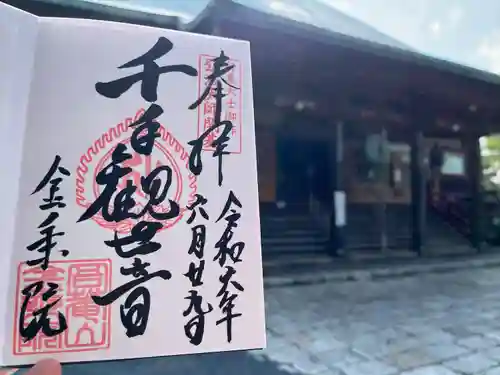 奉拝
令和六年
六月廿九日
千手観世音
金乗院